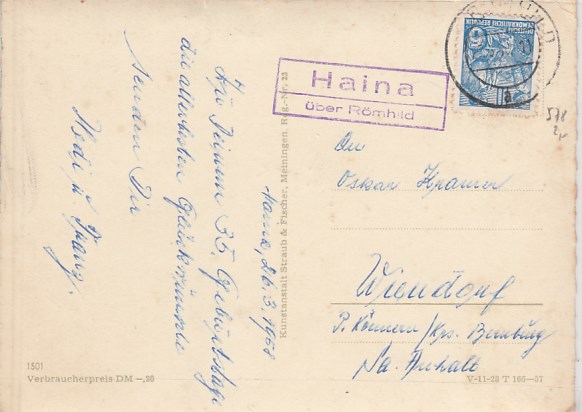 Haina, 26. 3. 1958
Zu Deinem 35. Geburtstage
die allerbesten Glückwünsche
senden Dir
Hedi u. Franz.
Kunstanstalt Straub & Fischer, Meiningen, Reg.-Nr. 23
1501
Verbraucherpreis DM -,20
Haina
über Römhild
DEUTSCHE
DEMOKRATISCHE REPUBLIK
a
578
An
Oskar Kramer
Wiendorf
P. Könnern/Krs. Bernburg
Sa. Anhalt
V-11-28 T 166-57